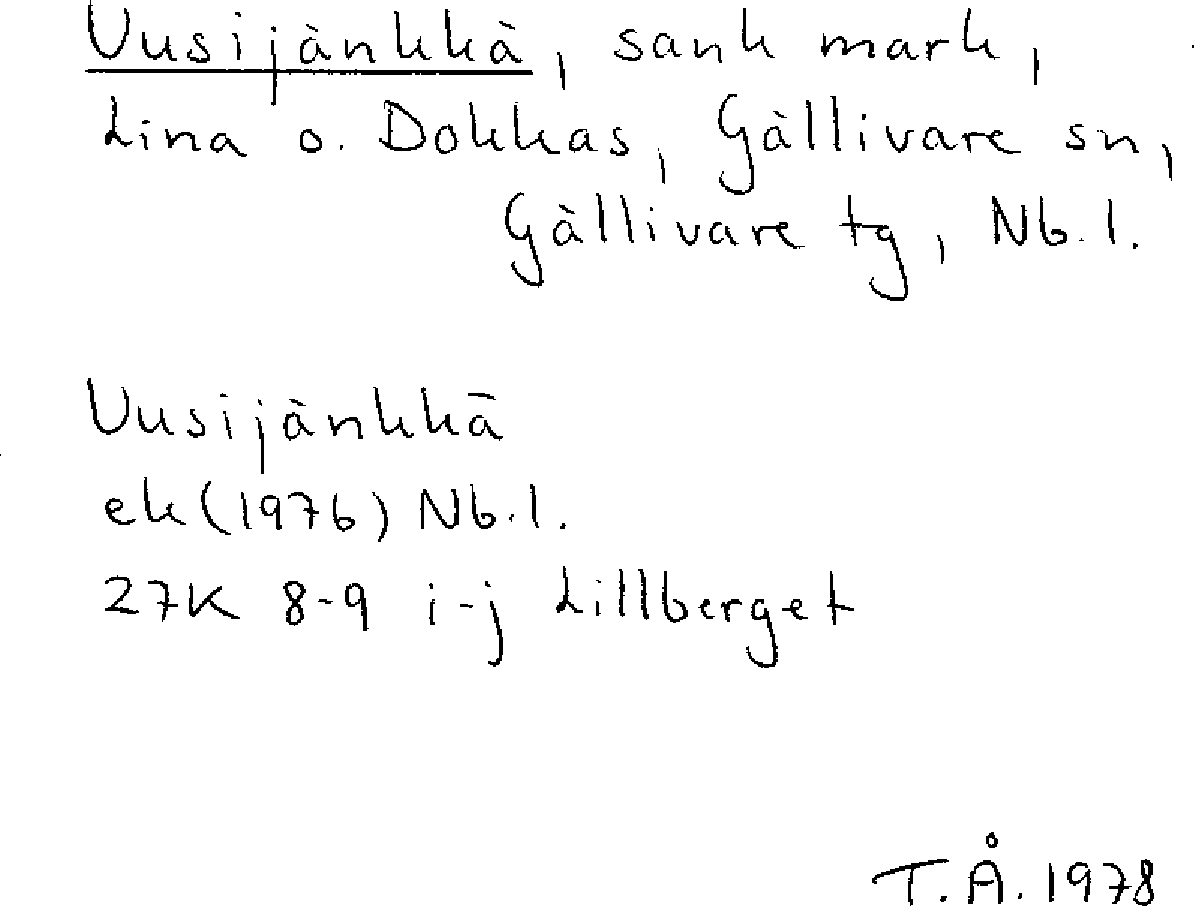 Uusijänkkä, sank mark,
Lina o. Dokkas, Gällivare sn,
Gällivare tg, Nb. l.
Uusijänkkä
ek (1976) Nb. l.
27K 8-9 i-j Lillberget
T.Å. 1978